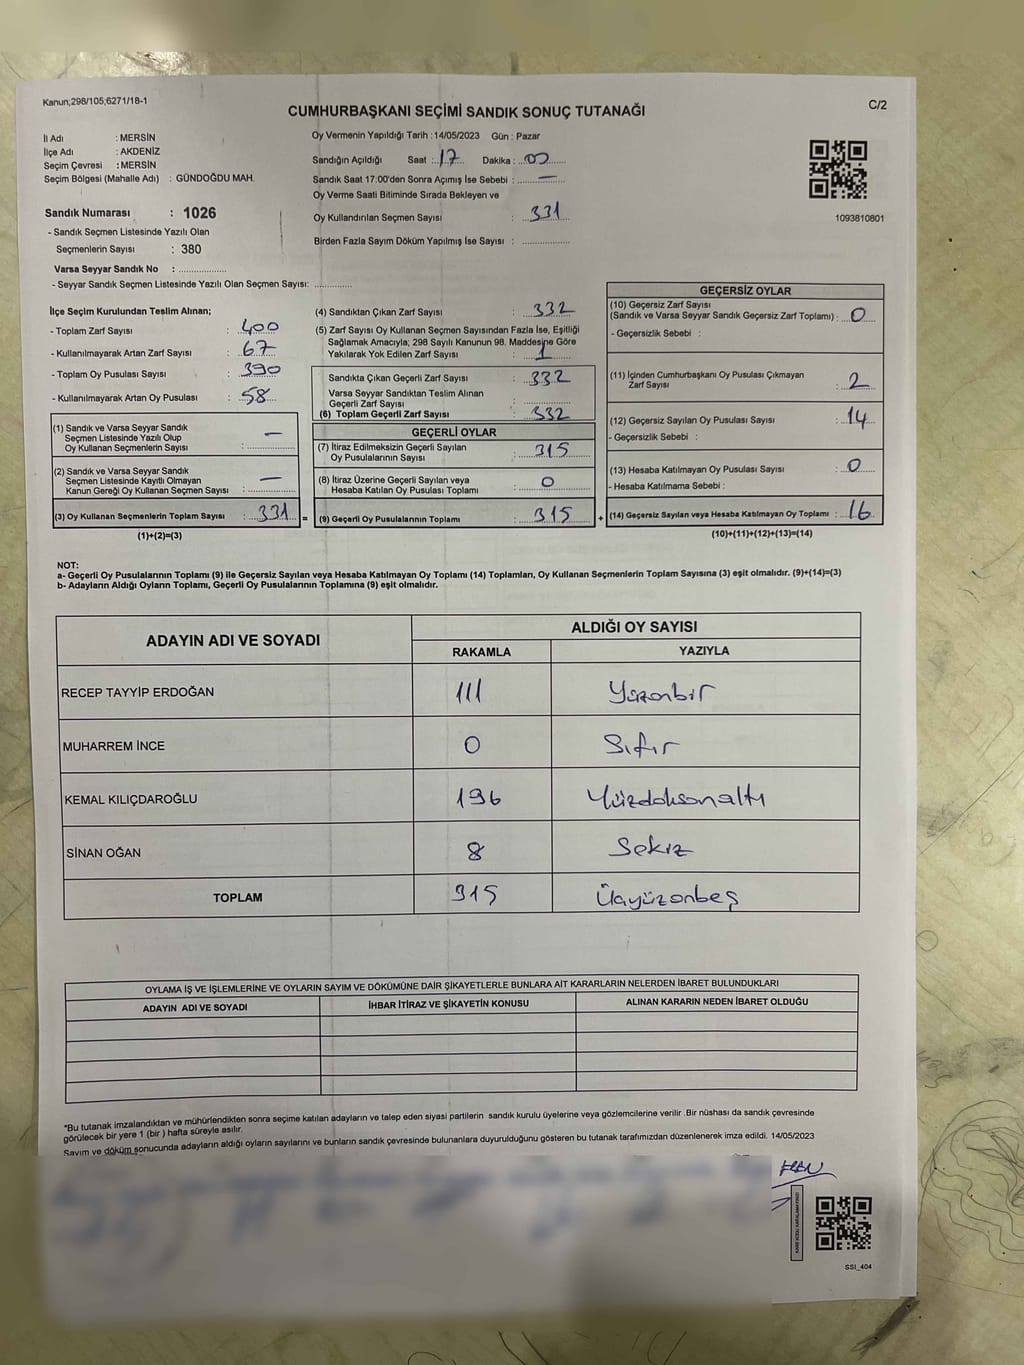 Kanun;298/105;6271/18-1
CUMHURBAŞKANI SEÇİMİ SANDIK SONUÇ TUTANAĞI
C/2
İl Adı : MERSİN
İlçe Adı : AKDENİZ
Seçim Çevresi : MERSİN
Seçim Bölgesi (Mahalle Adı) : GÜNDOĞDU MAH.
Oy Vermenin Yapıldığı Tarih : 14/05/2023 Gün : Pazar
Sandığın Açıldığı Saat : 17 Dakika : 00
Sandık Saat 17:00'den Sonra Açımış İse Sebebi : —
Oy Verme Saati Bitiminde Sırada Bekleyen ve
Oy Kullandırılan Seçmen Sayısı : 331
Birden Fazla Sayım Döküm Yapılmış İse Sayısı : ....................
1093810801
Sandık Numarası : 1026
- Sandık Seçmen Listesinde Yazılı Olan
Seçmenlerin Sayısı : 380
Varsa Seyyar Sandık No : ....................
- Seyyar Sandık Seçmen Listesinde Yazılı Olan Seçmen Sayısı: ...............
İlçe Seçim Kurulundan Teslim Alınan;
- Toplam Zarf Sayısı : 400
- Kullanılmayarak Artan Zarf Sayısı : 67
- Toplam Oy Pusulası Sayısı : 390
- Kullanılmayarak Artan Oy Pusulası : 58
(1) Sandık ve Varsa Seyyar Sandık
Seçmen Listesinde Yazılı Olup
Oy Kullanan Seçmenlerin Sayısı : —
(2) Sandık ve Varsa Seyyar Sandık
Seçmen Listesinde Kayıtlı Olmayan
Kanun Gereği Oy Kullanan Seçmen Sayısı : —
(3) Oy Kullanan Seçmenlerin Toplam Sayısı : 331 =
(1)+(2)=(3)
(4) Sandıktan Çıkan Zarf Sayısı : 332
(5) Zarf Sayısı Oy Kullanan Seçmen Sayısından Fazla İse, Eşitliği
Sağlamak Amacıyla; 298 Sayılı Kanunun 98. Maddesine Göre
Yakılarak Yok Edilen Zarf Sayısı : 1
Sandıkta Çıkan Geçerli Zarf Sayısı : 332
Varsa Seyyar Sandıktan Teslim Alınan
Geçerli Zarf Sayısı : ....................
(6) Toplam Geçerli Zarf Sayısı : 332
GEÇERLİ OYLAR
(7) İtiraz Edilmeksizin Geçerli Sayılan
Oy Pusulalarının Sayısı : 315
(8) İtiraz Üzerine Geçerli Sayılan veya
Hesaba Katılan Oy Pusulası Toplamı : 0
(9) Geçerli Oy Pusulalarının Toplamı : 315 +
GEÇERSİZ OYLAR
(10) Geçersiz Zarf Sayısı
(Sandık ve Varsa Seyyar Sandık Geçersiz Zarf Toplamı) : 0
- Geçersizlik Sebebi :
(11) İçinden Cumhurbaşkanı Oy Pusulası Çıkmayan
Zarf Sayısı : 2
(12) Geçersiz Sayılan Oy Pusulası Sayısı : 14
- Geçersizlik Sebebi :
(13) Hesaba Katılmayan Oy Pusulası Sayısı : 0
- Hesaba Katılmama Sebebi :
(14) Geçersiz Sayılan veya Hesaba Katılmayan Oy Toplamı : 16
(10)+(11)+(12)+(13)=(14)
NOT:
a- Geçerli Oy Pusulalarının Toplamı (9) ile Geçersiz Sayılan veya Hesaba Katılmayan Oy Toplamı (14) Toplamları, Oy Kullanan Seçmenlerin Toplam Sayısına (3) eşit olmalıdır. (9)+(14)=(3)
b- Adayların Aldığı Oyların Toplamı, Geçerli Oy Pusulalarının Toplamına (9) eşit olmalıdır.
ADAYIN ADI VE SOYADI
ALDIĞI OY SAYISI
RAKAMLA YAZIYLA
RECEP TAYYİP ERDOĞAN 111 Yüzonbir
MUHARREM İNCE 0 Sıfır
KEMAL KILIÇDAROĞLU 196 Yüzdoksanaltı
SİNAN OĞAN 8 Sekiz
TOPLAM 315 Üçyüzonbeş
OYLAMA İŞ VE İŞLEMLERİNE VE OYLARIN SAYIM VE DÖKÜMÜNE DAİR ŞİKAYETLERLE BUNLARA AİT KARARLARIN NELERDEN İBARET BULUNDUKLARI
ADAYIN ADI VE SOYADI İHBAR İTİRAZ VE ŞİKAYETİN KONUSU ALINAN KARARIN NEDEN İBARET OLDUĞU
*Bu tutanak imzalandıktan ve mühürlendikten sonra seçime katılan adayların ve talep eden siyasi partilerin sandık kurulu üyelerine veya gözlemcilerine verilir .Bir nüshası da sandık çevresinde
görülecek bir yere 1 (bir ) hafta süreyle asılır.
Sayım ve döküm sonucunda adayların aldığı oyların sayılarını ve bunların sandık çevresinde bulunanlara duyurulduğunu gösteren bu tutanak tarafımızdan düzenlenerek imza edildi. 14/05/2023
SSI_404